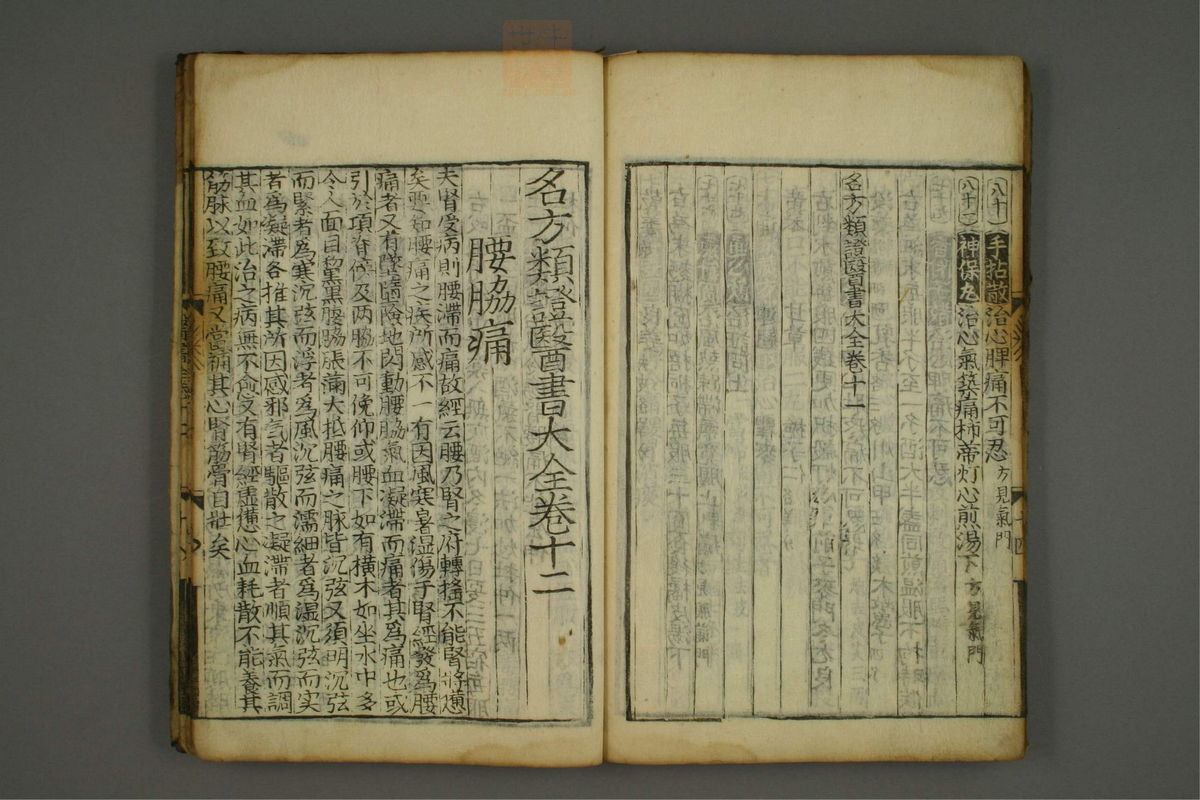 八十一 手拈散 治心脾痛不可忍 方見氣門
八十二 神保丸 治心氣築痛柿蒂灯心煎湯下 方見氣門
名方類證醫書大全卷十一
名方類證醫書大全卷十二
腰脇痛
夫腎受病則腰滯而痛故經云腰乃腎之府轉搖不能腎將憊
矣要知腰痛之疾所感不一有因風寒暑濕傷于腎經發爲腰
痛者又有墜墮險地閃動腰脇氣血凝滯而痛者其爲痛也或
引於項脊傍及两脇不可俛仰或腰下如有横木如坐水中多
令人面目黧黒腰脇脹滿大抵腰痛之脉皆沉弦又須明沉弦
而緊者爲寒沉弦而浮者爲風沉弦而濡細者爲濕沉弦而实
者爲凝滯各推其所因感邪气者驅散之凝滯者順其氣而調
其血如此治之病無不愈又有腎經虚憊心血耗散不能養其
筋脉以致腰痛又當補其心腎筋骨自壯矣